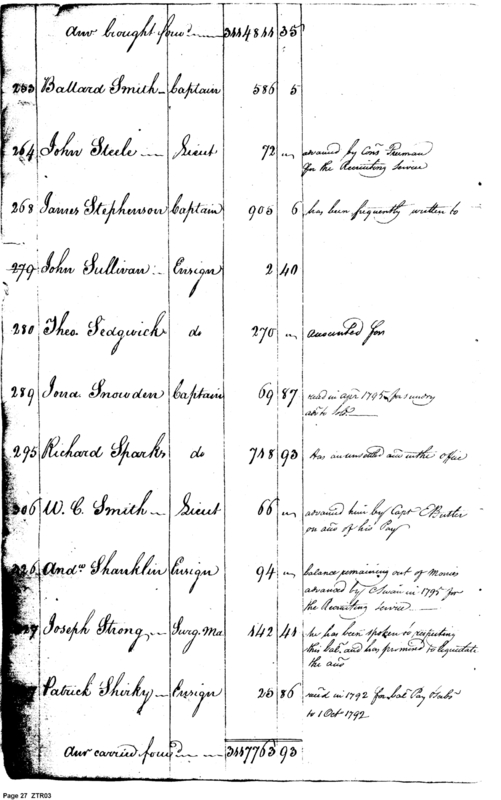 Amt brought forwd 344 4844 35
253 Ballard Smith Captain 586 5
264 John Steele Lieut 72 "
advanced by Cons Freeman
for the Recruiting Service
268 James Stephenson Captain 905 6 has been frequently written to
279 John Sullivan Ensign 2 40
280 Theo. Sedgwick do 270 " accounted for
289 Jona. Snowden Captain 69 87
recd in apr 1795 for sundry
295 Richard Sparks do 748 93 Has an unsettled acct in the office
306 W. C. Smith Lieut 66 "
advanced him by Capt E Butler
on acct of his Pay
326 Andw Shanklin Ensign 94 "
balance remaining out of Monies
advanced by C Swan in 1795 for
the Recruiting Service
27 Joseph Strong Surg. Ma 442 41
he has been spoken to respecting
this bal. and has promised to liquidate
the acct
7 Patrick Shirky Ensign 25 86
recd in 1792 for bal Pay & subs
to 1 Oct 1792
Amt carried forwd 3447763 93
Page 27 ZTR03